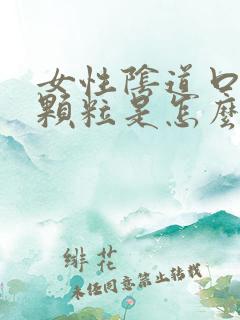 女性陰道口
顆粒是怎麼
緋花
未经同意禁止转载